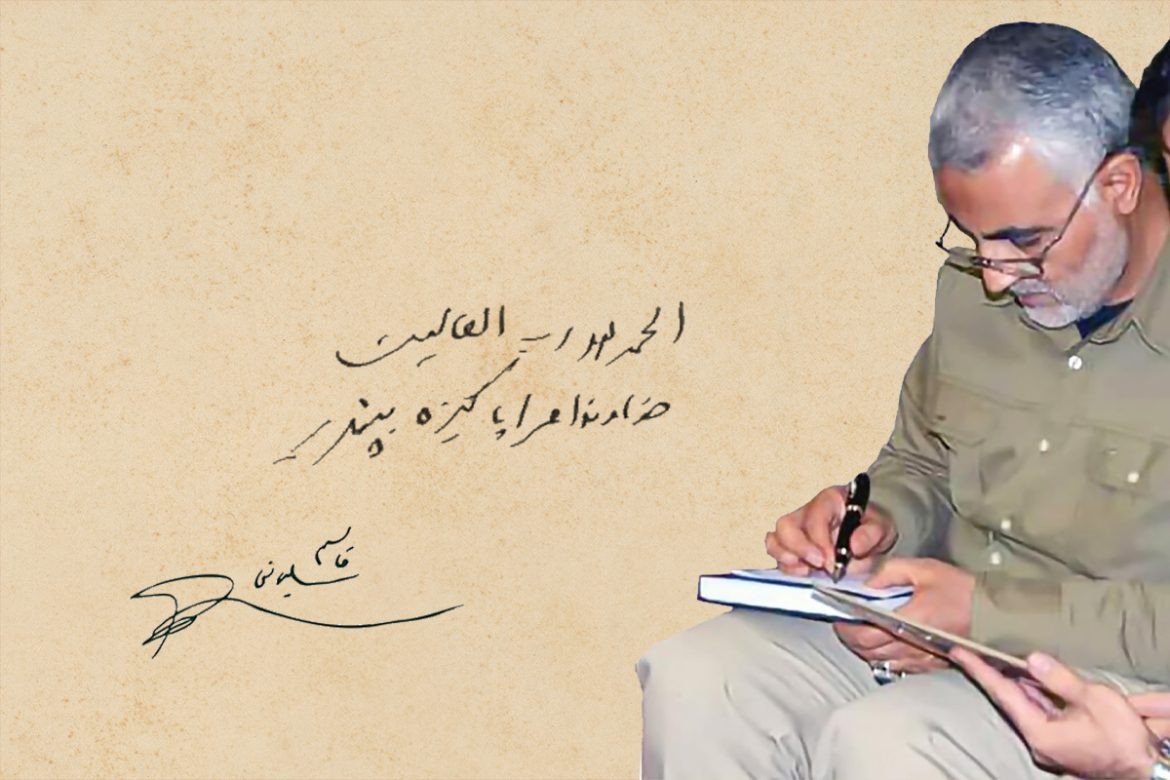 الحمدلله رب العالمین
خداوندا مرا پاکیزه بپذیر
قاسم
سلیمانی